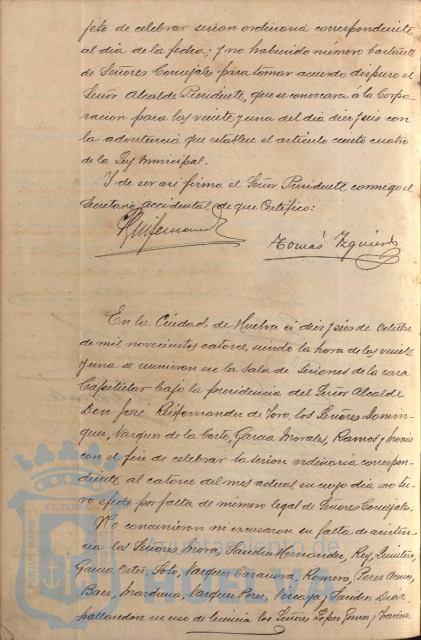 jeto de celebrar sesion ordinaria correspondiente
al dia de la fecha; y no habiendo número bastante
de Señores Concejales para tomar acuerdo dispuso el
Señor Alcalde Presidente, que se convocara á la Corpo-
racion para las veinte y una del dia diez y seis con
la advertencia que establece el artículo ciento cuatro
de la Ley Municipal.
Y de ser así firma el Señor Presidente conmigo el
Secretario accidental de que Certifico:
Tomás Izquierdo
En la Ciudad de Huelva á diez y seis de Octubre
de mil novecientos catorce, siendo la hora de las veinte
y una se reunieron en la Sala de Sesiones de la casa
Capitular bajo la presidencia del Señor Alcalde
Don José Ruifernandez de Toro, los Señores Domin-
guez, Vazquez de la Corte, Garcia Morales, Ramos y
con el fin de celebrar la sesion ordinaria correspon-
diente al catorce del mes actual en cuyo dia no tu-
vo efecto por falta de número legal de Señores Concejales.
No concurrieron ni excusaron su falta de asisten-
cia los Señores Mora, Sanchez Hernandez, Rey,
Garcia Ortiz, Soto, Vazquez Romero, Perez
Baez, Vazquez Perez, y Sanchez Diaz
hallandose en uso de licencia los Señores Lopez Gomez y